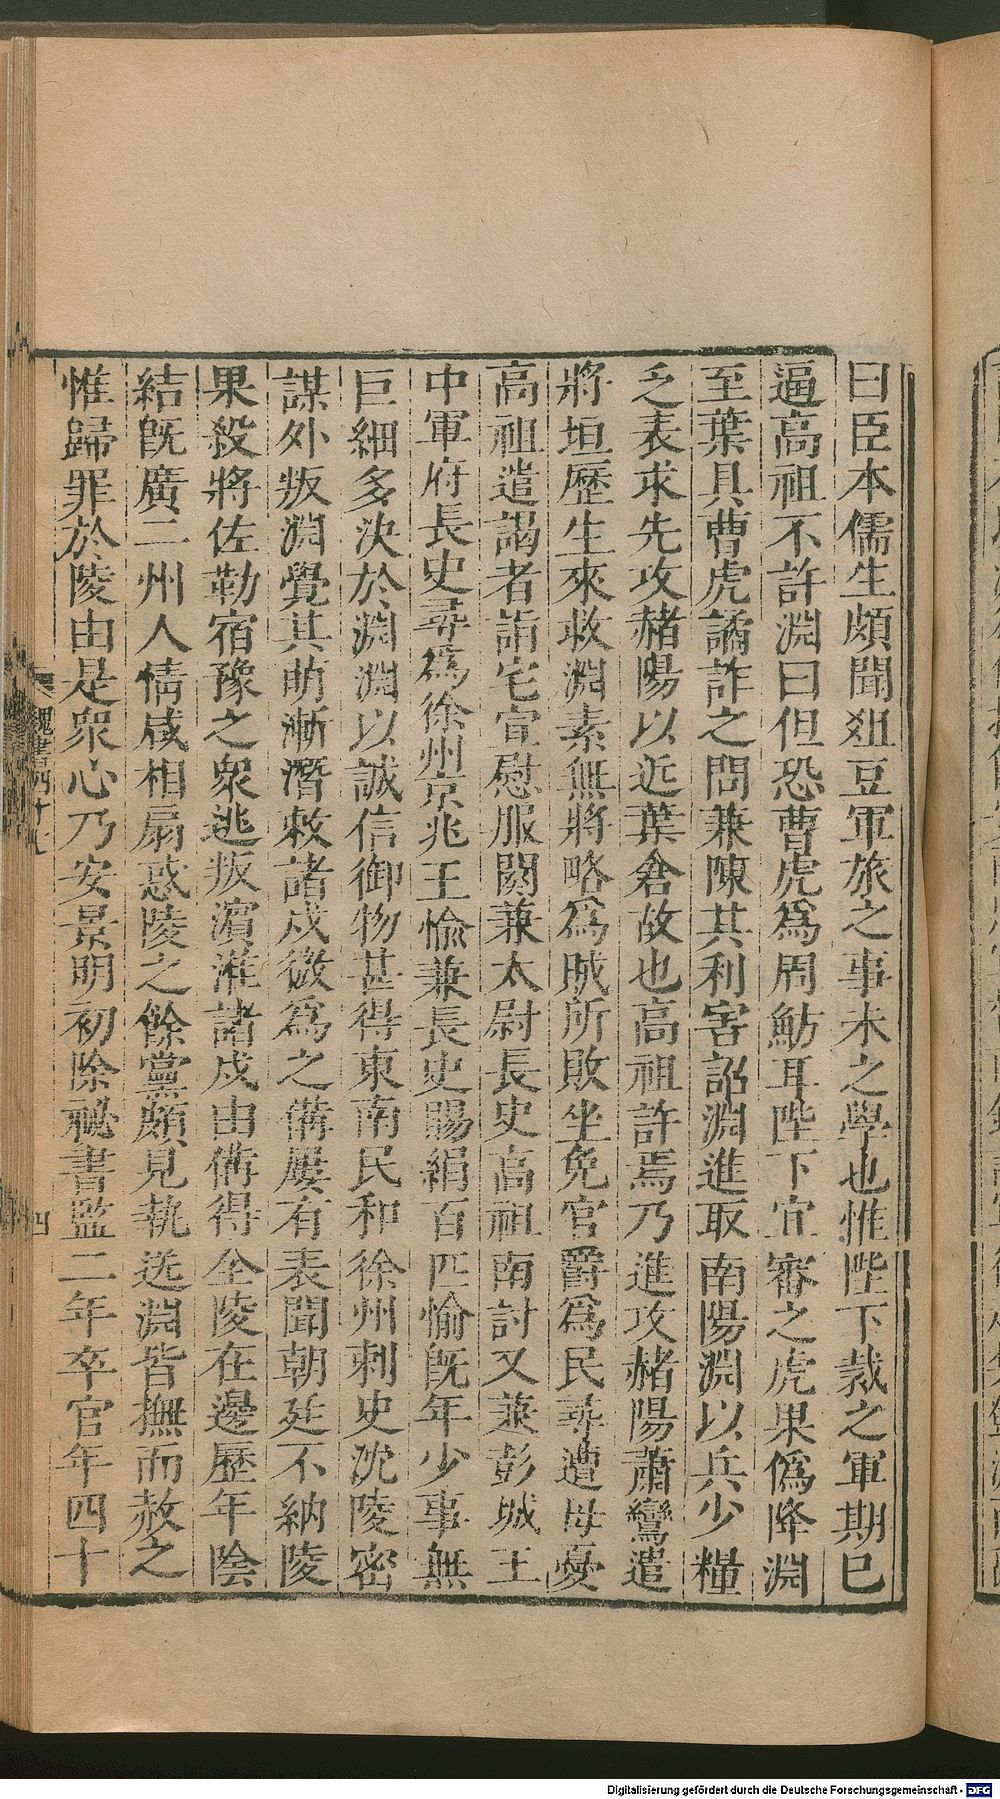 曰臣本儒生頗聞俎豆軍旅之事未之學也惟陛下裁之軍期已
逼高祖不許淵曰但恐曹虎爲周魴耳陛下宜審之虎果僞降淵
至葉具曹虎譎詐之問兼陳其利害詔淵進取南陽淵以兵少糧
乏表求先攻赭陽以近葉倉故也高祖許焉乃進攻赭陽蕭鸞遣
將垣歷生來救淵素無將略爲賊所敗坐免官爵爲民尋遭母憂
高祖遣謁者詣宅宣慰服闋兼太尉長史高祖南討又兼彭城王
中軍府長史尋爲徐州京兆王愉兼長史賜絹百匹愉旣年少事無
巨細多決於淵淵以誠信御物甚得東南民和徐州刺史沈陵密
謀外叛淵覺其萌漸潛敕諸戍微爲之備屢有表聞朝廷不納陵
果殺將佐勒宿豫之衆逃叛濱淮諸戍由備得全陵在邊歷年陰
結旣廣二州人情咸相扇惑陵之餘黨頗見執送淵皆撫而赦之
惟歸罪於陵由是衆心乃安景明初除祕書監二年卒官年四十
魏書四十七
四
Digitalisierung gefördert durch die Deutsche Forschungsgemeinschaft - DFG